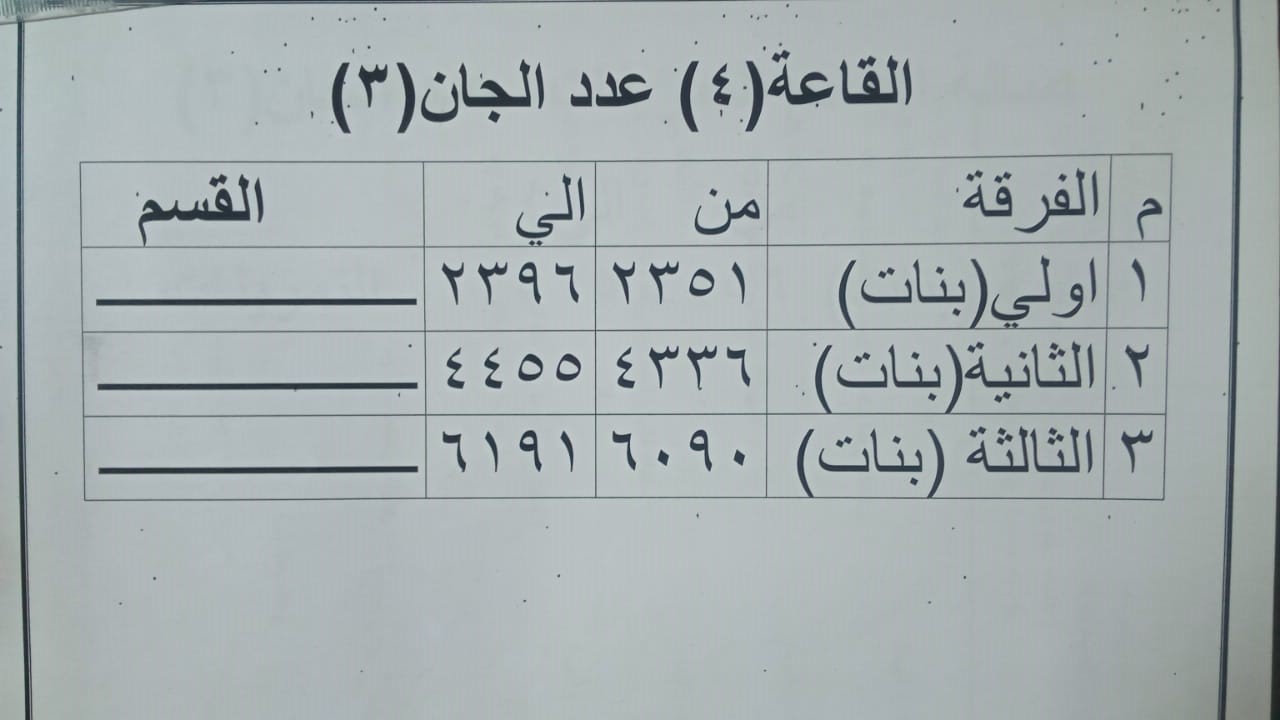 القاعة(٤) عدد الجان(٣)
م الفرقة من الي القسم
١ اولي(بنات) ٢٣٥١ ٢٣٩٦
٢ الثانية(بنات) ٤٣٣٦ ٤٤٥٥
٣ الثالثة (بنات) ٦٠٩٠ ٦١٩١